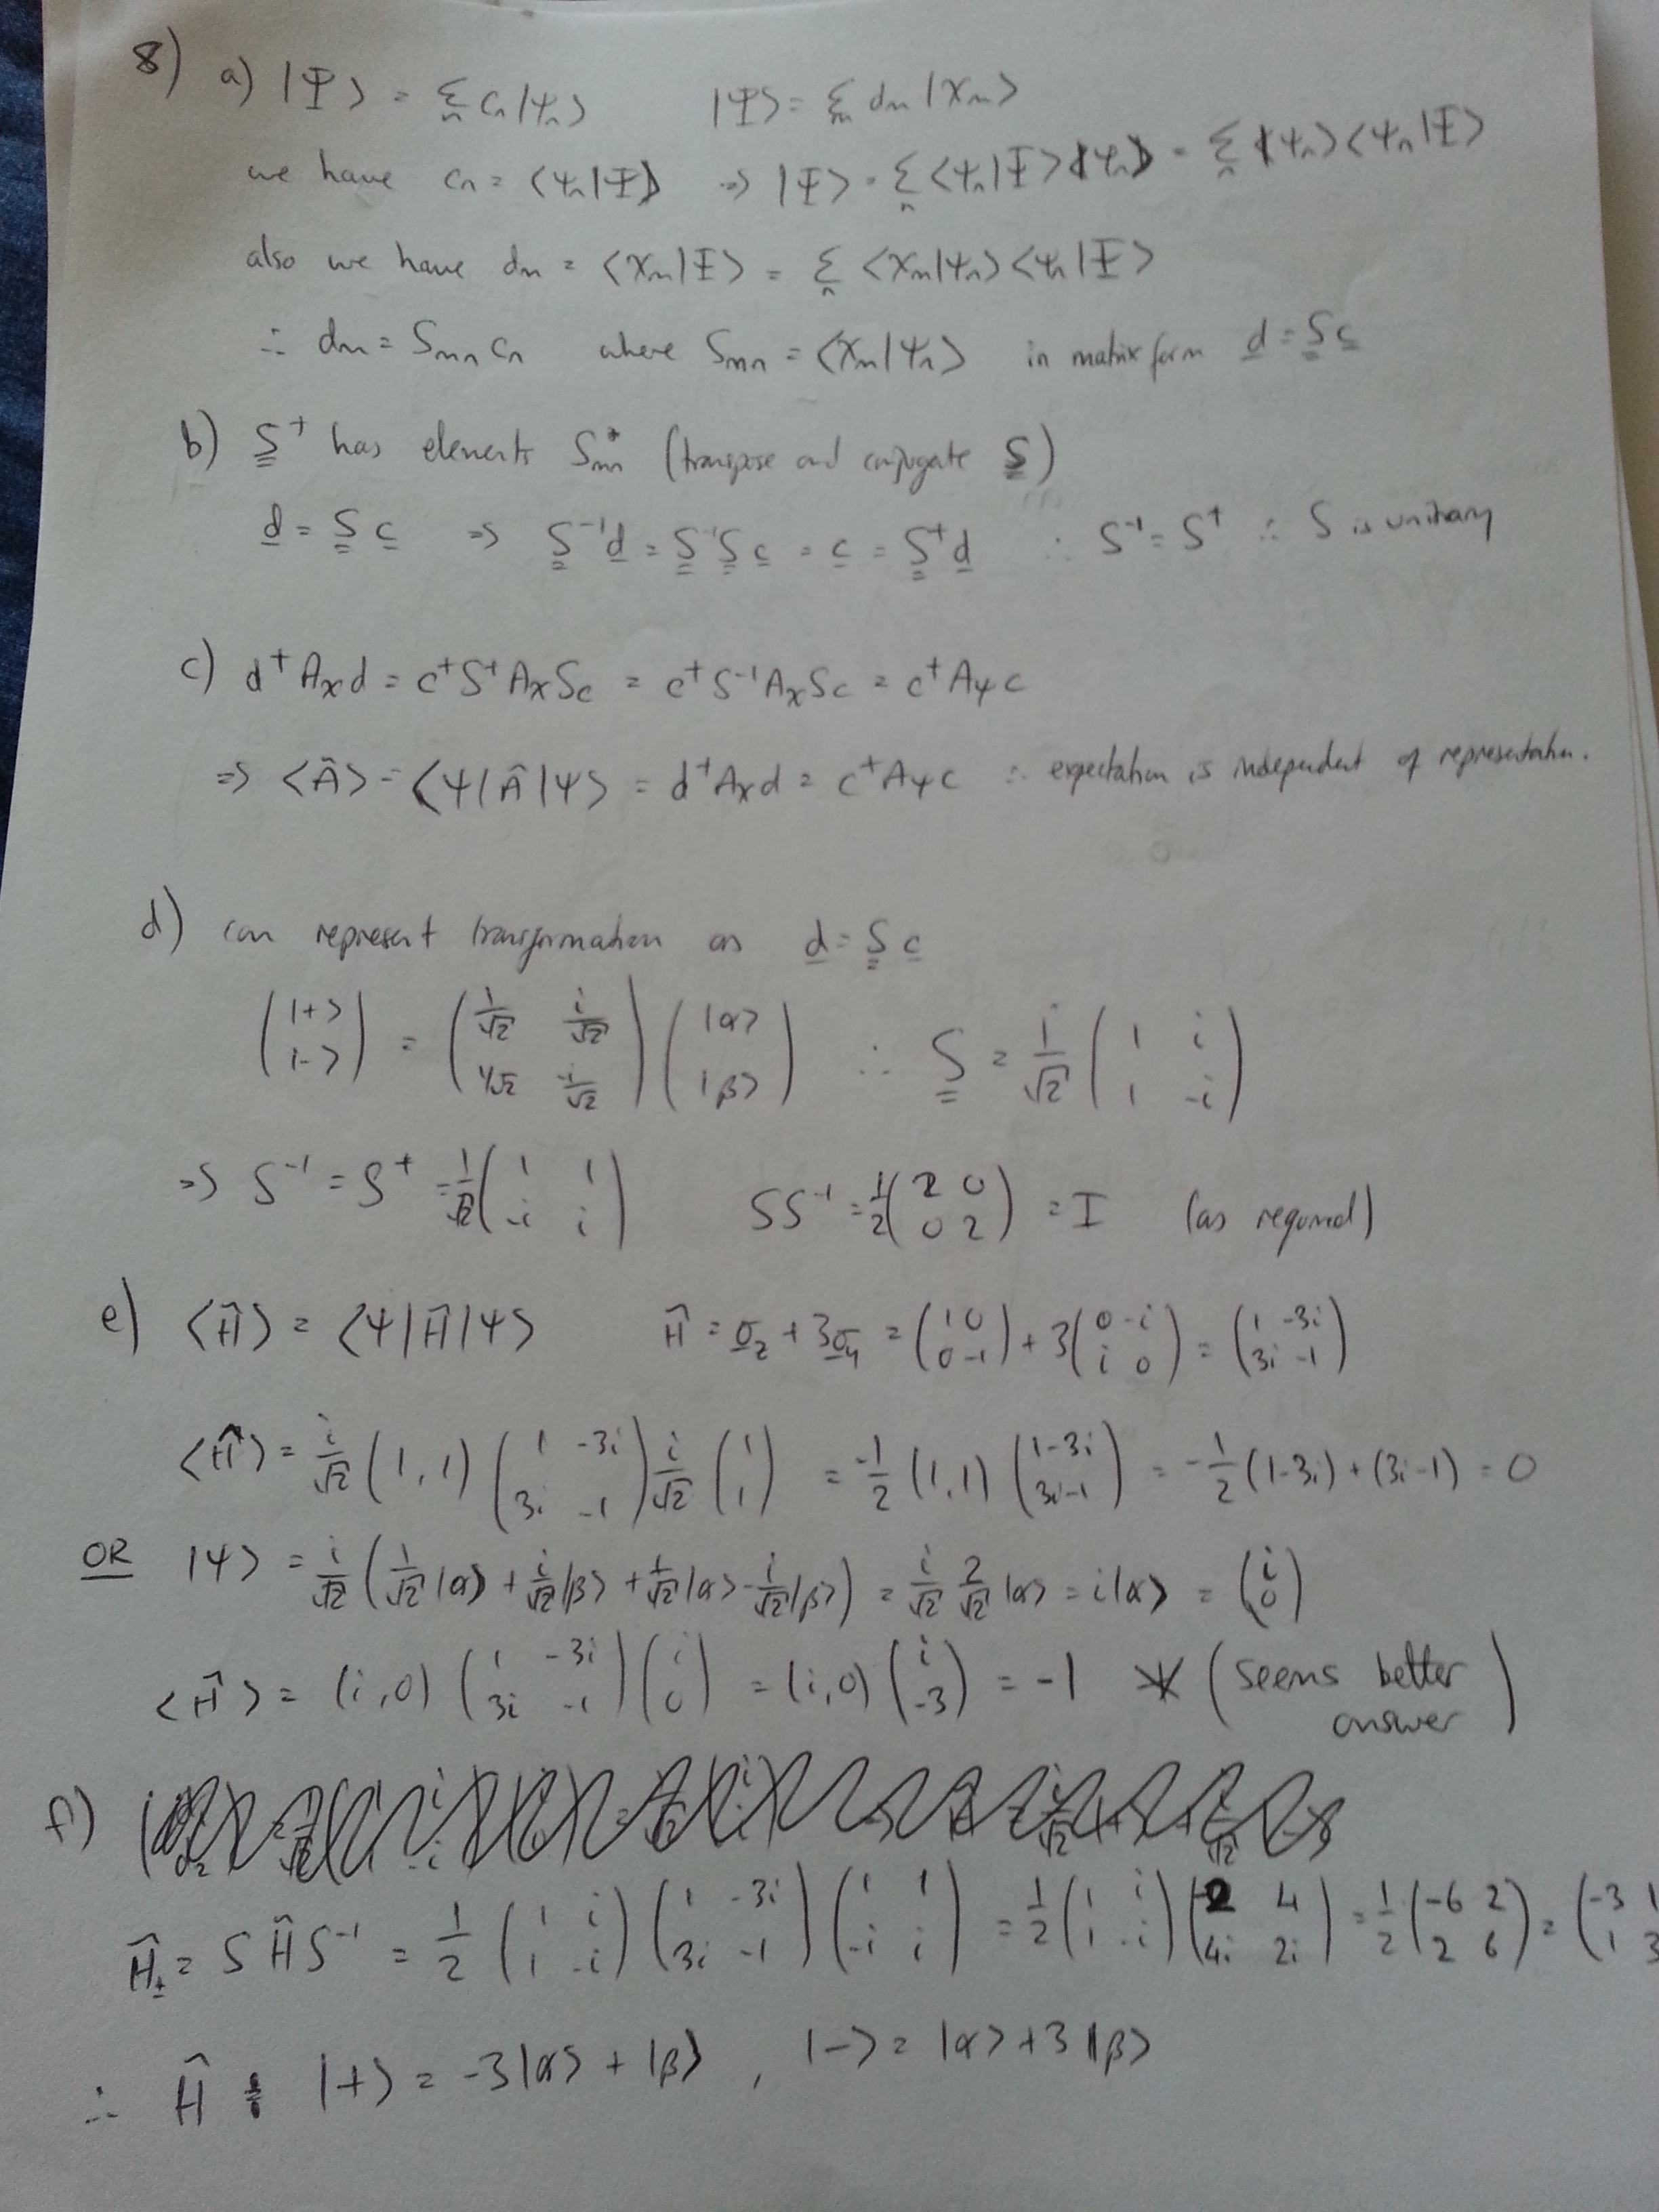 8) a) |Ψ> = Σ_n c_n|ψ_n>    |Ψ> = Σ_m d_m |χ_m>
we have c_n = <ψ_n|Ψ> => |Ψ> = Σ_n <ψ_n|Ψ>|ψ_n> = Σ_n |ψ_n><ψ_n|Ψ>
also we have d_m = <χ_m|Ψ> = Σ_n <χ_m|ψ_n><ψ_n|Ψ>
∴ d_m = S_mn c_n where S_mn = <χ_m|ψ_n> in matrix form d = S c
b) S† has elements S*_nm (transpose and conjugate S)
d = S c => S⁻¹d = S⁻¹S c = c = S†d ∴ S⁻¹ = S† ∴ S is unitary
c) d†A_χ d = c†S†A_χ S c = c†S⁻¹A_χ S c = c†A_ψ c
=> <Â> = <ψ|Â|ψ> = d†A_χ d = c†A_ψ c ∴ expectation is independent of representation.
d) can represent transformation as d = S c
(|+> ; |->) = (1/√2 i/√2 ; 1/√2 -i/√2)(|α> ; |β>) ∴ S = 1/√2 (1 i ; 1 -i)
=> S⁻¹ = S† = 1/√2 (1 1 ; -i i)    SS⁻¹ = 1/2 (2 0 ; 0 2) = I (as required)
e) <Ĥ> = <ψ|Ĥ|ψ>    Ĥ = σ_z + 3σ_y = (1 0 ; 0 -1) + 3(0 -i ; i 0) = (1 -3i ; 3i -1)
<Ĥ> = i/√2 (1, 1)(1 -3i ; 3i -1) i/√2 (1 ; 1) = -1/2 (1, 1)(1-3i ; 3i-1) = -1/2 (1-3i) + (3i-1) = 0
OR |ψ> = i/√2 (1/√2 |α> + i/√2 |β> + 1/√2 |α> - i/√2 |β>) = i/√2 2/√2 |α> = i|α> = (i ; 0)
<Ĥ> = (i, 0)(1 -3i ; 3i -1)(i ; 0) = (i, 0)(i ; -3) = -1 * (seems better answer)
f)
Ĥ_± = S Ĥ S⁻¹ = 1/2 (1 i ; 1 -i)(1 -3i ; 3i -1)(1 1 ; -i i) = 1/2 (1 i ; 1 -i)(-2 4 ; 4i 2i) = 1/2 (-6 2 ; 2 6) = (-3 1 ; 1 3
∴ Ĥ : |+> = -3|α> + |β> , |-> = |α> + 3|β>